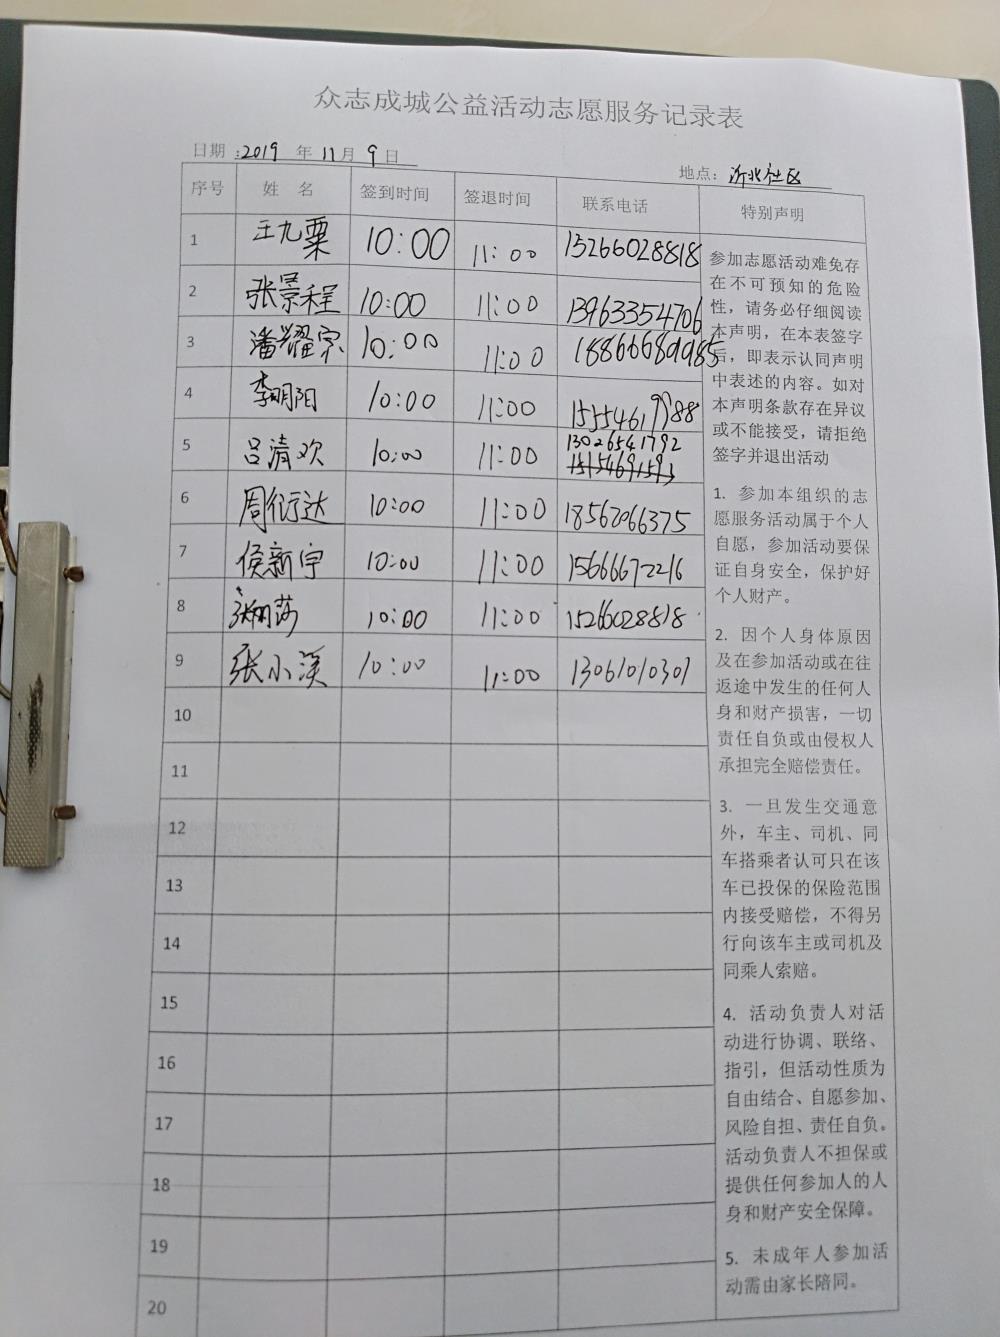 众志成城公益活动志愿服务记录表
日期:2019 年 11月 9 日
地点: 沂北社区
序号 姓 名 签到时间 签退时间 联系电话 特别声明
1 王九粟 10:00 11:00 13266028818
2 张景程 10:00 11:00 13963354706
3 潘耀宗 10:00 11:00 18866689985
4 李明阳 10:00 11:00 15554619988
5 吕清欢 10:00 11:00 13026541792
6 周衍达 10:00 11:00 18562066375
7 侯新宇 10:00 11:00 15666672216
8 10:00 11:00 15266028818
9 张小溪 10:00 11:00 13061010301
10
11
12
13
14
15
16
17
18
19
20
参加志愿活动难免存
在不可预知的危险
性，请务必仔细阅读
本声明，在本表签字
后，即表示认同声明
中表述的内容。如对
本声明条款存在异议
或不能接受，请拒绝
签字并退出活动
1. 参加本组织的志
愿服务活动属于个人
自愿，参加活动要保
证自身安全，保护好
个人财产。
2. 因个人身体原因
及在参加活动或在往
返途中发生的任何人
身和财产损害，一切
责任自负或由侵权人
承担完全赔偿责任。
3. 一旦发生交通意
外，车主、司机、同
车搭乘者认可只在该
车已投保的保险范围
内接受赔偿，不得另
行向该车主或司机及
同乘人索赔。
4. 活动负责人对活
动进行协调、联络、
指引，但活动性质为
自由结合、自愿参加、
风险自担、责任自负。
活动负责人不担保或
提供任何参加人的人
身和财产安全保障。
5. 未成年人参加活
动需由家长陪同。